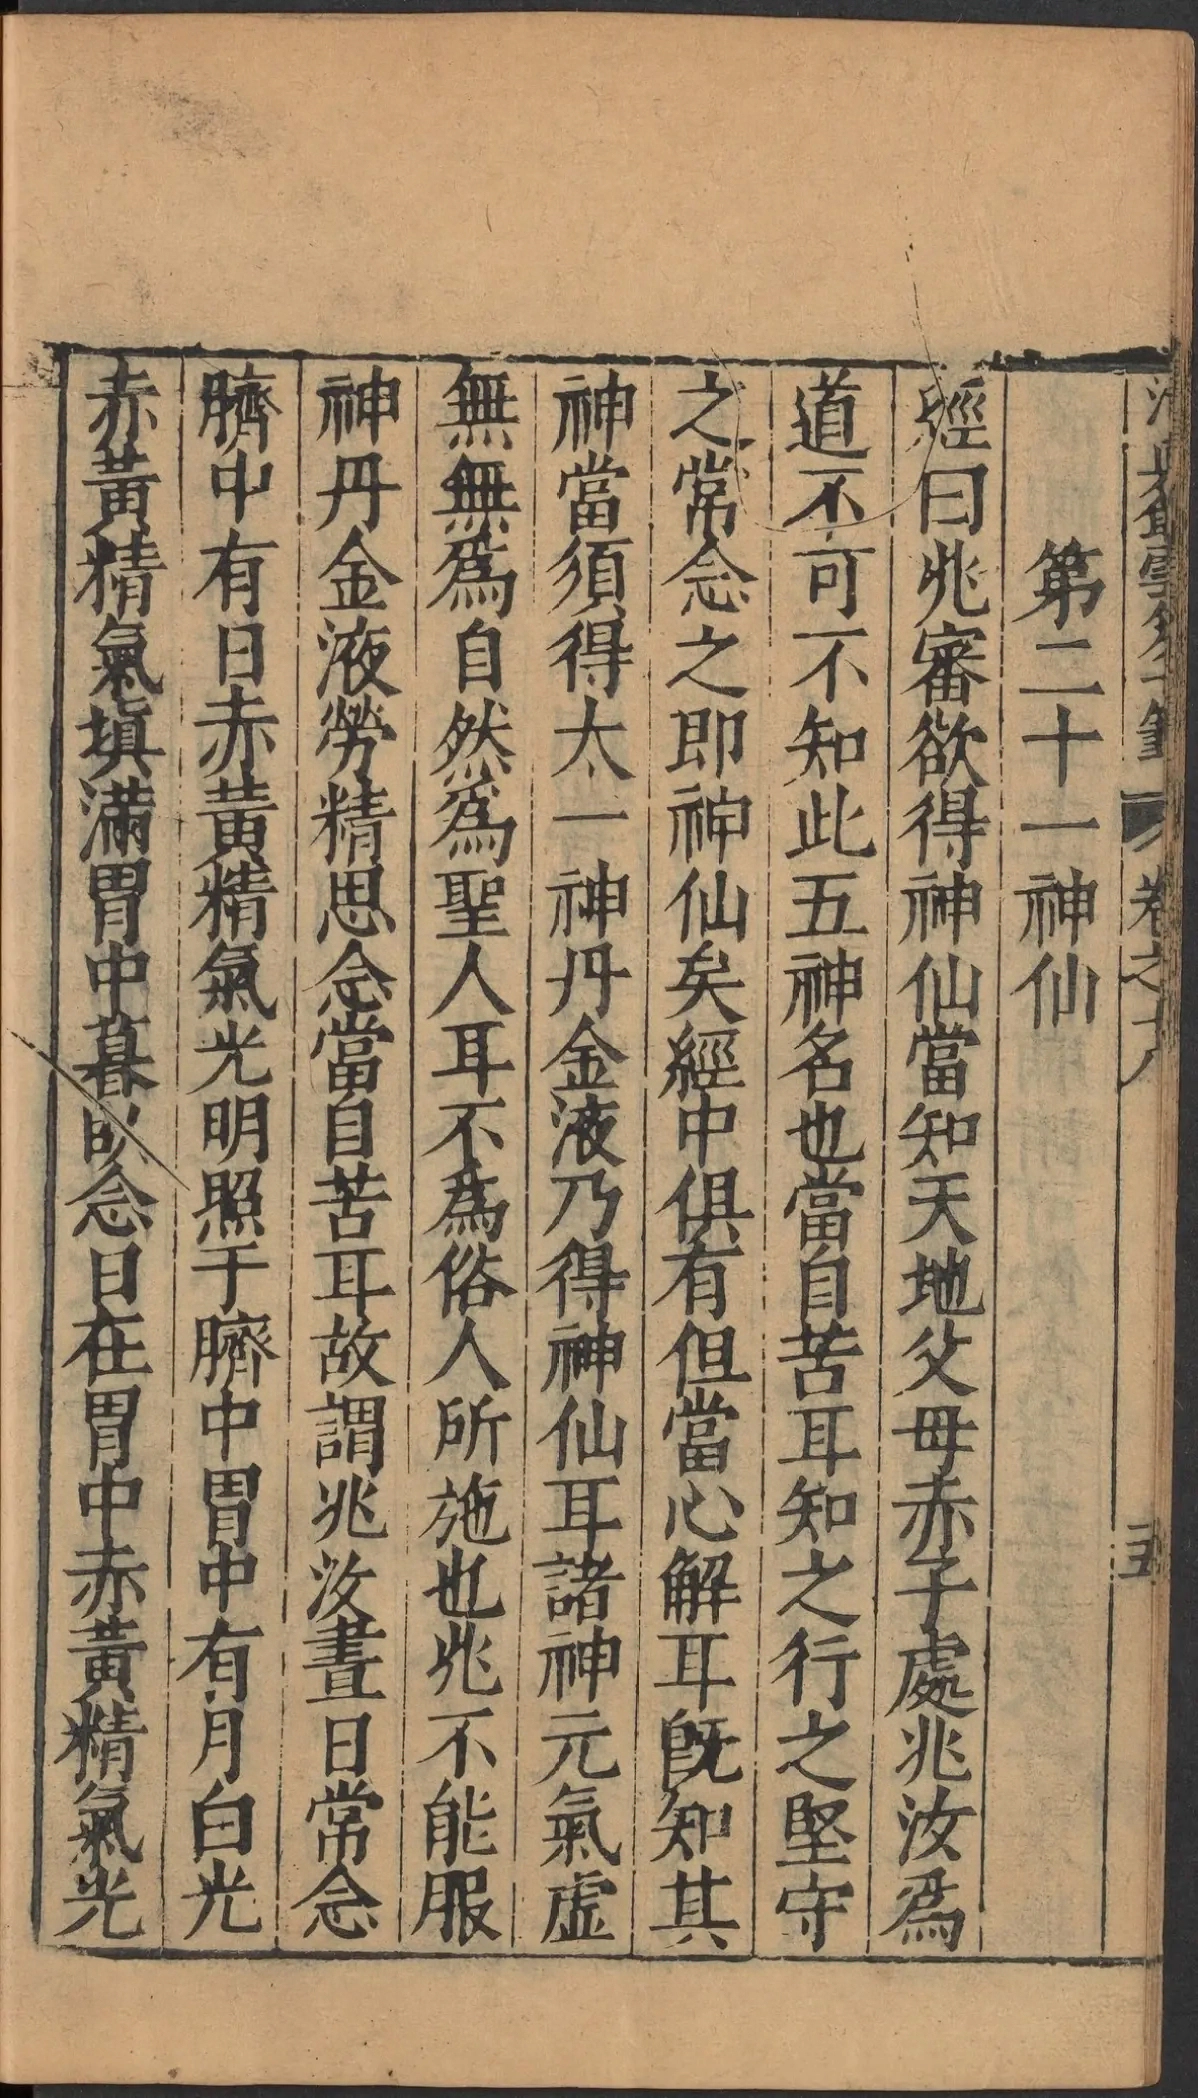 卷之十八
五
第二十一神仙
經曰兆審欲得神仙當知天地父母赤子處兆汝爲
道不可不知此五神名也當自苦耳知之行之堅守
之常念之即神仙矣經中俱有但當心解耳旣知其
神當須得太一神丹金液乃得神仙耳諸神元氣虛
無無爲自然爲聖人耳不爲俗人所施也兆不能服
神丹金液勞精思念當自苦耳故謂兆汝晝日常念
臍中有日赤黃精氣光明照于臍中胃中有月白光
赤黃精氣塡滿胃中暮臥念日在胃中赤黃精氣光